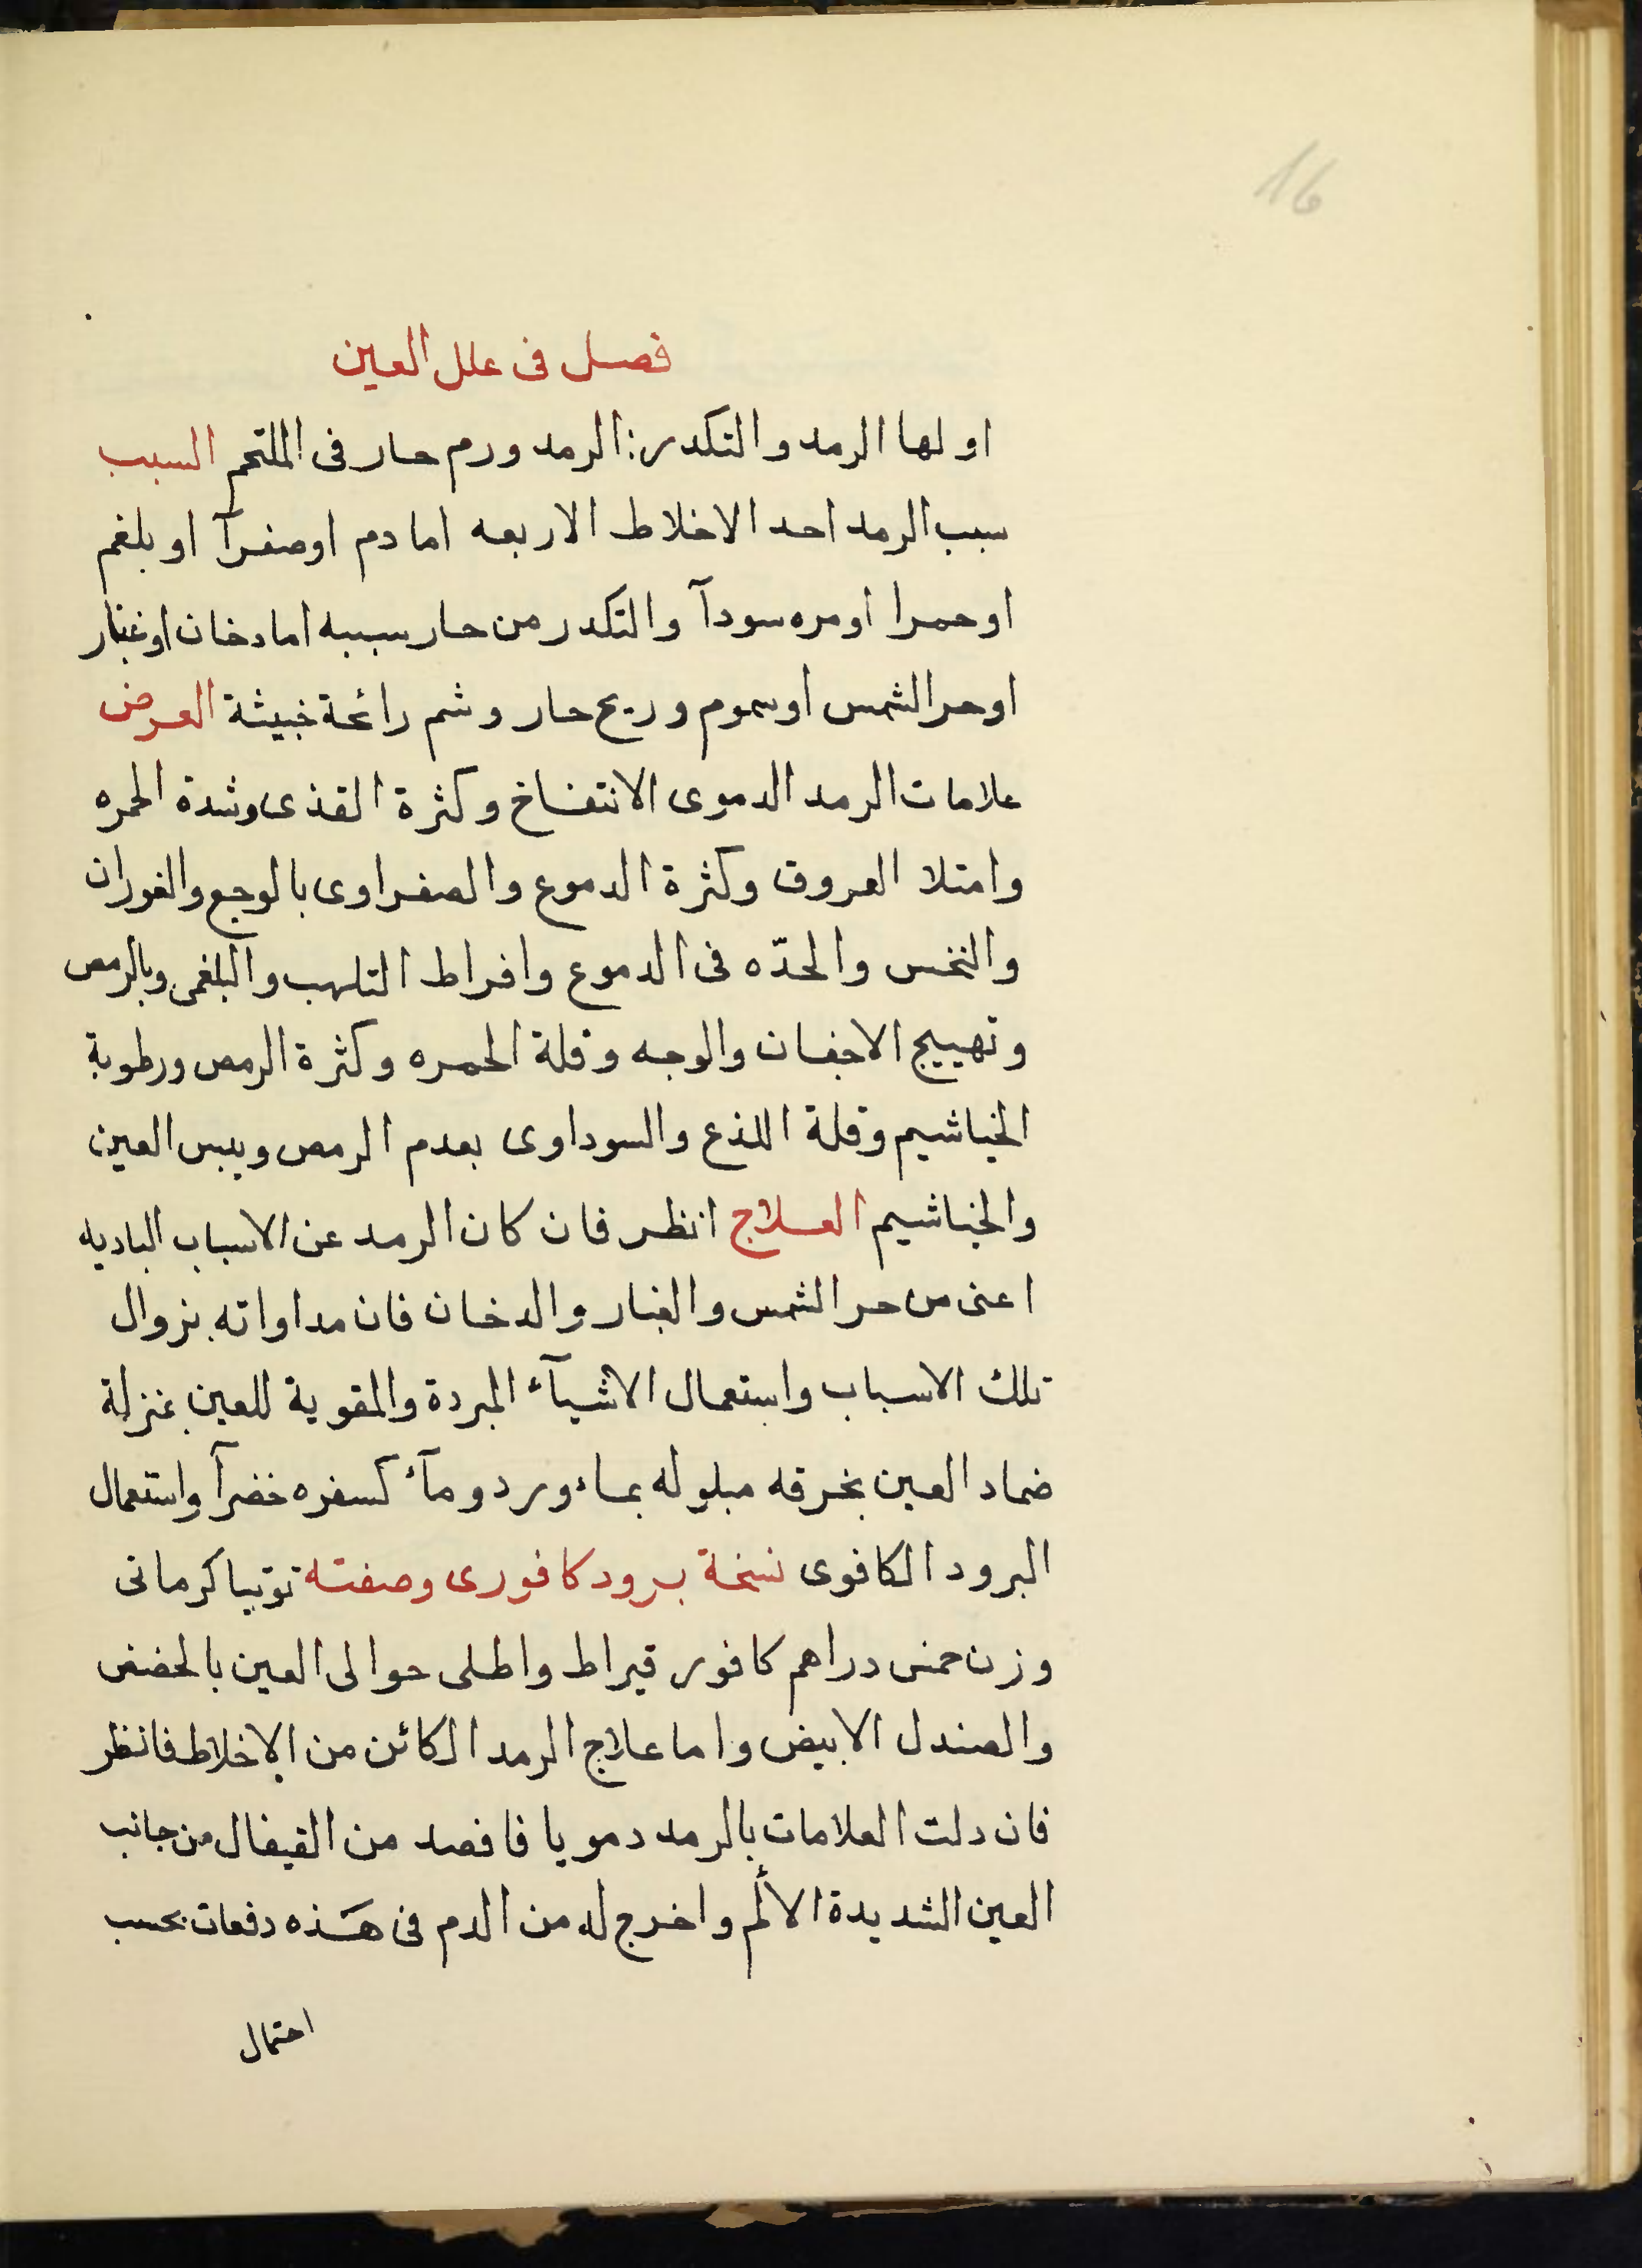 16
فصل فى علل العين
اولها الرمد والتكدر: الرمد ورم حار فى الملتحم السبب
سبب الرمد احد الاخلاط الاربعه اما دم او صفرآ او بلغم
او حمرا او مره سودآ والتكدر من حار سببه اما دخان او غبار
او حر الشمس او سموم وريح حار وشم رائحة خبيثة العرض
علامات الرمد الدموى الانتفاخ وكثرة القذى وشدة الحمره
وامتلا العروق وكثرة الدموع والصفراوى بالوجع والغوران
والنخس والحدّه فى الدموع وافراط التلهب والبلغمى وبالرمص
وتهييج الاجفان والوجه وقلة الحمره وكثرة الرمص ورطوبة
الخياشيم وقلة اللذع والسوداوى بعدم الرمص ويبس العين
والخياشيم العلاج انظر فان كان الرمد عن الاسباب الباديه
اعنى من حر الشمس والغبار والدخان فان مداواته بزوال
تلك الاسباب واستعمال الاشيآء المبردة والمقوية للعين بمنزلة
ضماد العين بخرقه مبلوله بماء ورد ومآء كسفره خضرآ واستعمال
البرود الكافوى نسخة برود كافورى وصفته توتيا كرمانى
وزن خمس دراهم كافور قيراط واطلى حوالى العين بالحضض
والصندل الابيض واما علاج الرمد الكائن من الاخلاط فانظر
فان دلت العلامات بالرمد دمويا فافصد من القيفال من جانب
العين الشديدة الألم واخرج له من الدم فى هذه دفعات بحسب
احتمال